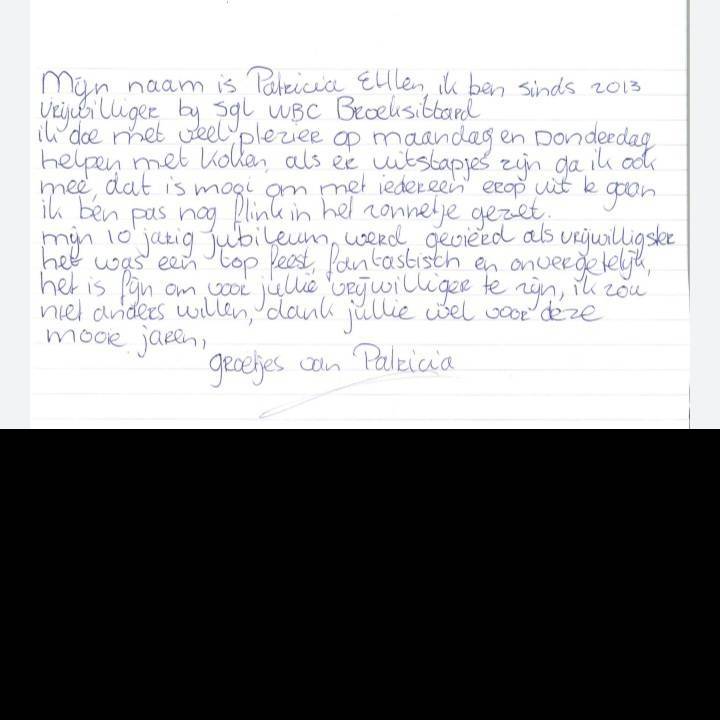 Mijn naam is Patricia Ellen, ik ben sinds 2013
vrijwilliger by Sgl WBC Broeksittard
ik doe met veel plezier op maandag en Donderdag
helpen met koken, als er uitstapjes zijn ga ik ook
mee, dat is mooi om met iedereen erop uit te gaan
ik ben pas nog flink in het zonnetje gezet.
mijn 10 jarig jubileum, werd gevierd als vrijwilligster
het was een top feest, fantastisch en onvergetelijk,
het is fijn om voor jullie vrijwilliger te zijn, ik zou
niet anders willen, dank jullie wel voor deze
mooie jaren,
groetjes van Patricia